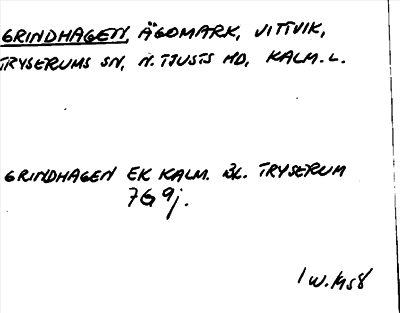 GRINDHAGEN, ÄGOMARK, VITTVIK,
TRYSERUMS SN, N. TJUSTS HD, KALM. L.
GRINDHAGEN EK KALM. BL. TRYSERUM
7G 9j.